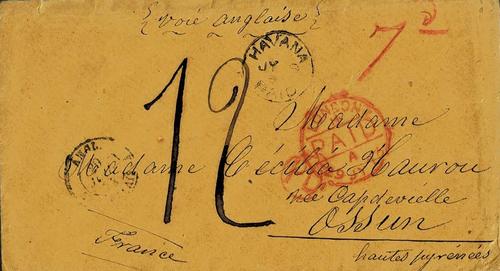 voie anglaise
7d
HAVANA
PAID
LONDON
PAID
12
Madame
Madame Cécilia
née Capdevielle
Ossun
France
hautes pyrénées